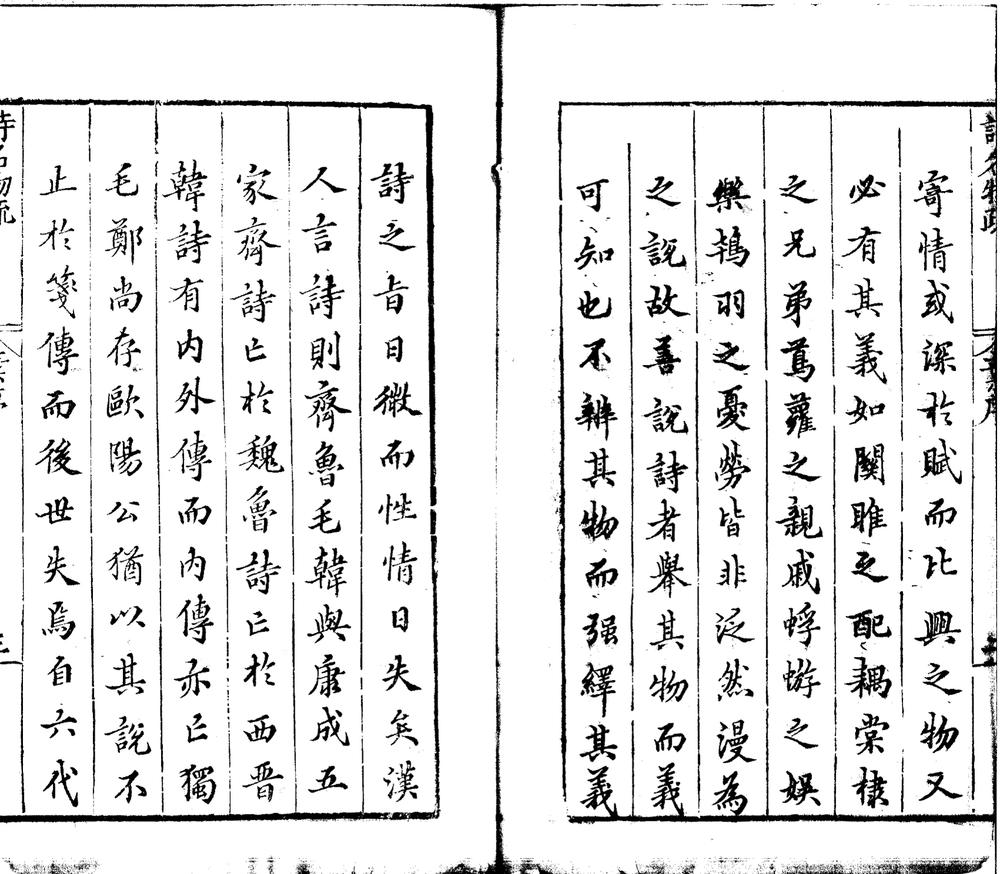 寄情或深於賦而比興之物又
必有其義如關雎之配耦棠棣
之兄弟蔦蘿之親戚蜉蝣之娛
樂鴇羽之憂勞皆非泛然漫為
之說故善說詩者舉其物而義
可知也不辨其物而强繹其義
詩之旨日微而性情日失矣漢
人言詩則齊魯毛韓與康成五
家齊詩亡於魏魯詩亡於西晉
韓詩有內外傳而內傳亦亡獨
毛鄭尚存歐陽公猶以其說不
止於箋傳而後世失焉自六代